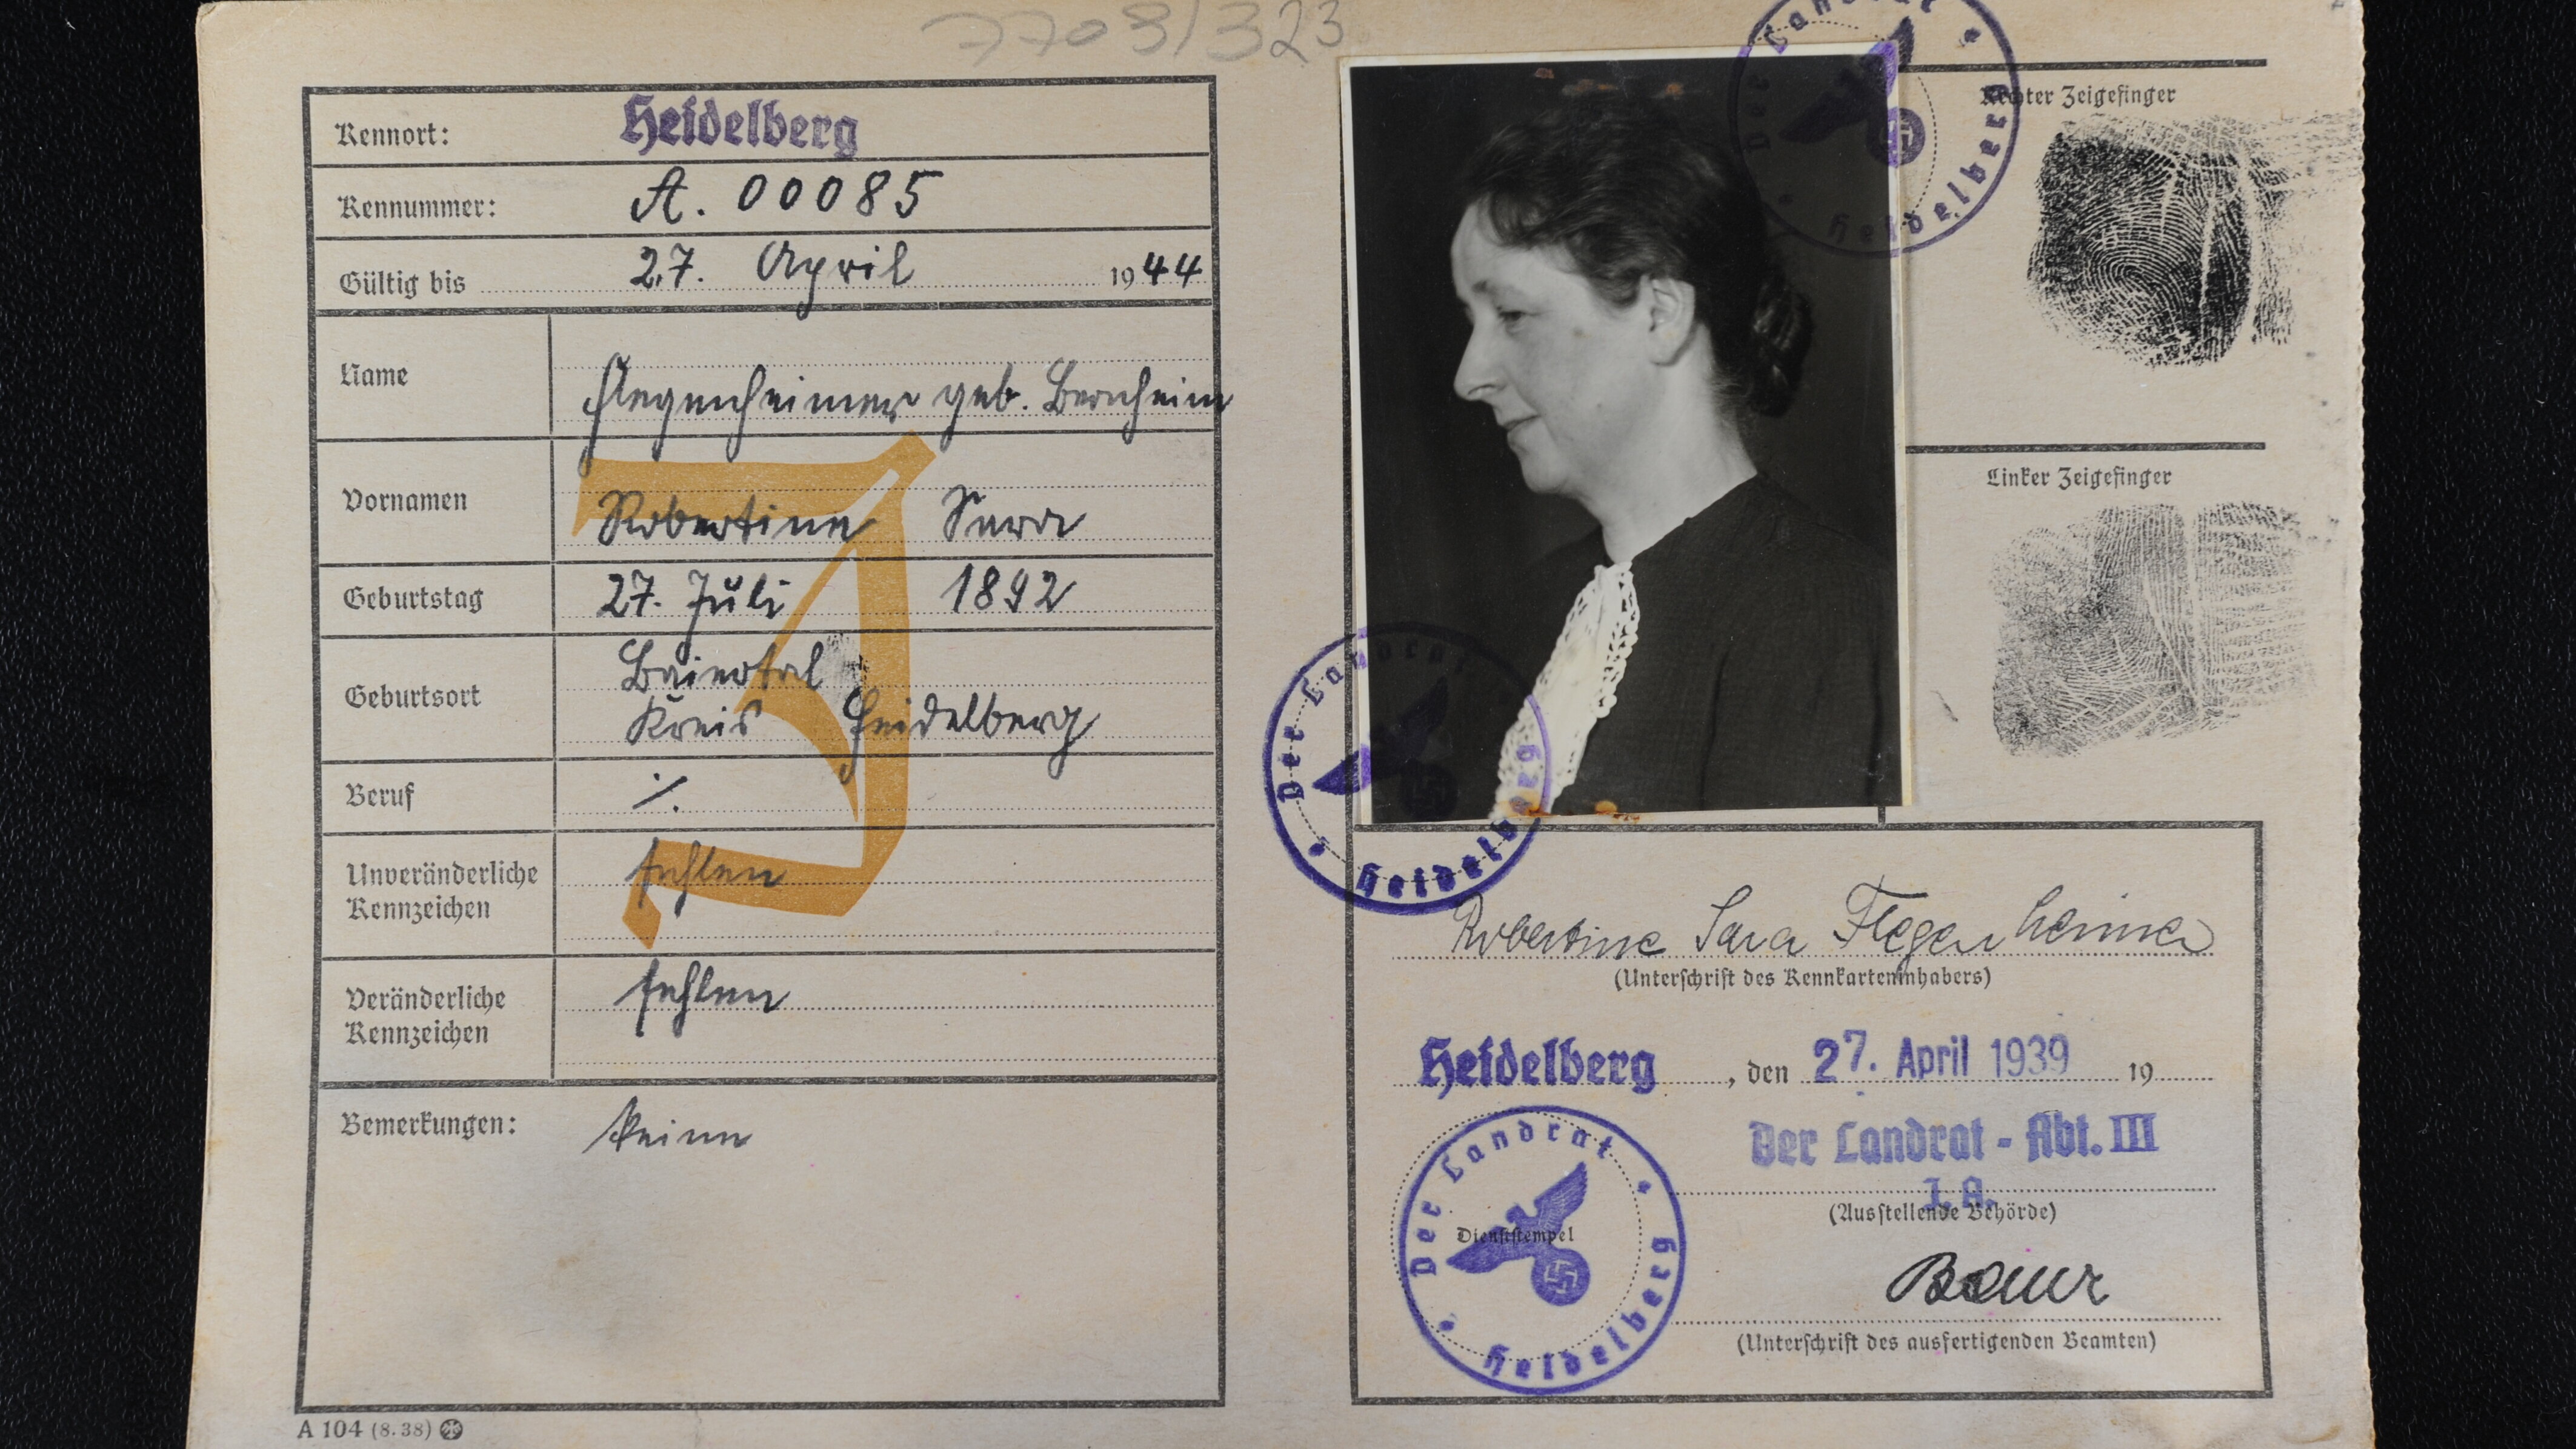 7703/323
Kennort: Heidelberg
Kennummer: A. 00085
Gültig bis 27. April 1944
Name Flegenheimer geb. Bernheim
Vornamen Robertine Sara
Geburtstag 27. Juli 1892
Geburtsort Baiertal
Kreis Heidelberg
Beruf ·/.
Unveränderliche Kennzeichen fehlen
Veränderliche Kennzeichen fehlen
Bemerkungen: keine
J
A 104 (8. 38)
Der Landrat
Heidelberg
Rechter Zeigefinger
Linker Zeigefinger
Der Landrat
Heidelberg
Robertine Sara Flegenheimer
(Unterschrift des Kennkarteninhabers)
Heidelberg, den 27. April 1939 19
Der Landrat - Abt. III
I. A.
(Ausstellende Behörde)
Der Landrat
Dienststempel
Heidelberg
Baur
(Unterschrift des ausfertigenden Beamten)